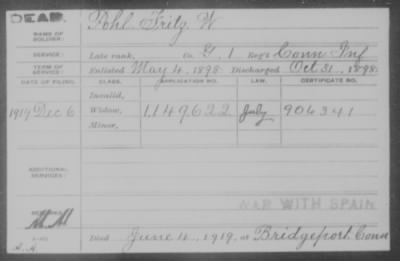 DEAD.
NAME OF SOLDIER: Pohl Fritz W
SERVICE: Late rank, Co. G, 1 Reg't Conn Inf
TERM OF SERVICE: Enlisted May 4, 1898 Discharged Oct 31, 1898
DATE OF FILING. CLASS. APPLICATION NO. LAW. CERTIFICATE NO.
Invalid,
1919 Dec 6 Widow, 1149622 July 904341
Minor,
ADDITIONAL SERVICES:
WAR WITH SPAIN
Died June 4, 1919, at Bridgeport Conn